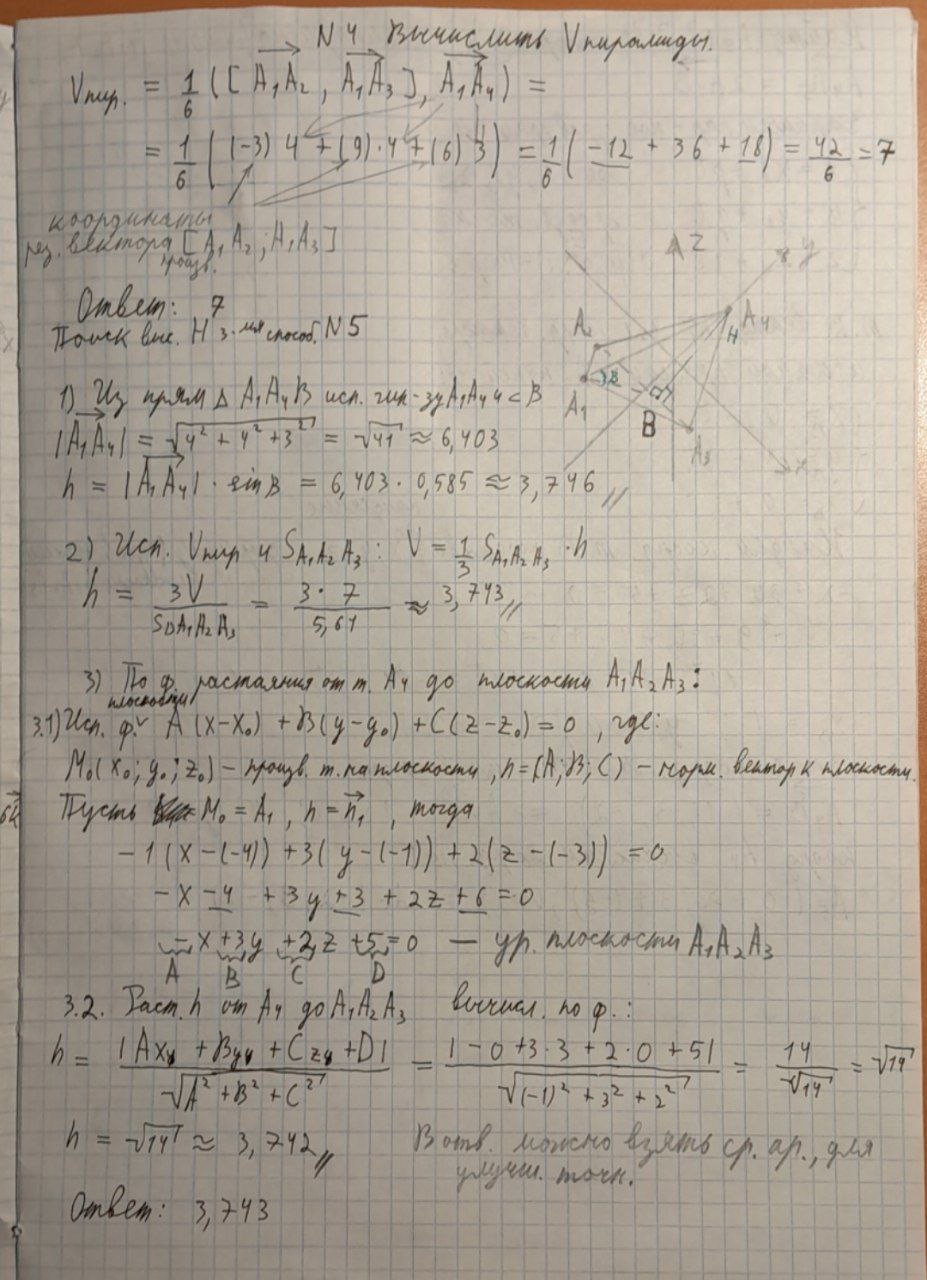 N 4 Вычислить Vпирамиды.
Vпир. = 1/6 ([A₁A₂, A₁A₃], A₁A₄) =
= 1/6 ((-3) 4 + (9)·4 + (6) 3) = 1/6 (-12 + 36 + 18) = 42/6 = 7
координаты
рез. вектора [A₁A₂; A₁A₃]
произв.
Z
y
A₂
A₄
H
A₁
B
B
A₃
x
Ответ: 7
Поиск выс. H 3-мя способ. N5
1) Из прям Δ A₁A₄B исп. гип-зу A₁A₄ и ∠B
|A₁A₄| = √(4² + 4² + 3²) = √41 ≈ 6,403
h = |A₁A₄| · sin B = 6,403 · 0,585 ≈ 3,746
2) Исп. Vпир и S A₁A₂A₃: V = 1/3 S A₁A₂A₃ · h
h = 3V / SΔA₁A₂A₃ = 3·7 / 5,61 ≈ 3,743
3) По ф. растаяния от т. A₄ до плоскости A₁A₂A₃:
3.1) Исп. ф. плоскости A(x-x₀) + B(y-y₀) + C(z-z₀) = 0, где:
M₀(x₀; y₀; z₀) – произв. т. на плоскости, n=(A; B; C) – норм. вектор к плоскости.
Пусть M₀ = A₁, n = n₁, тогда
-1(x-(-4)) + 3(y-(-1)) + 2(z-(-3)) = 0
-x -4 + 3y +3 + 2z +6 = 0
-x +3y +2z +5 = 0 — ур. плоскости A₁A₂A₃
A B C D
3.2. Раст. h от A₄ до A₁A₂A₃ вычисл. по ф.:
h = |Ax₄ + By₄ + Cz₄ + D| / √(A² + B² + C²) = |-0 +3·3 + 2·0 + 5| / √((-1)² + 3² + 2²) = 14/√14 = √14
h = √14 ≈ 3,742
В отв. можно взять ср. ар., для
улучш. точн.
Ответ: 3,743